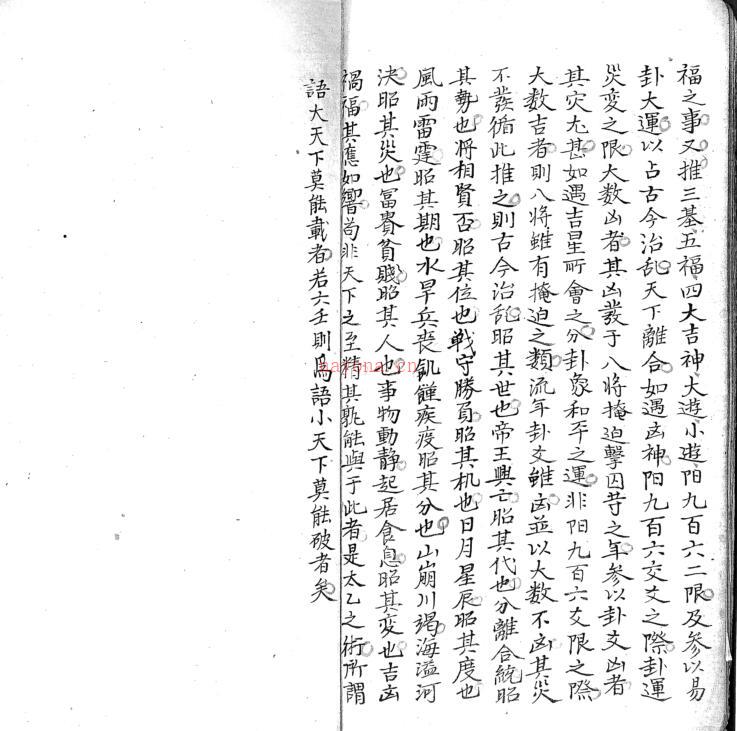 福之事又推三基五福四大吉神大遊小遊陽九百六二限及參以易
卦大運以占古今治乱天下離合如遇凶神阳九百六交爻之際卦運
災変之限大数凶者其凶發于八將掩迫擊囚等之年参以卦爻凶者
其灾尤甚如遇吉星所會之分卦象和平之運非阳九百六爻限之際
大数吉者則八將雖有掩迫之類流年卦爻雖凶並以大数不凶其災
不發循此推之則古今治乱昭其世也帝王興亡昭其代也分離合統昭
其勢也将相賢否昭其位也戦守勝負昭其机也日月星辰昭其度也
風雨雷霆昭其期也水旱兵喪飢饉疾疫昭其分也山崩川竭海溢河
決昭其災也冨貴貧賤昭其人也事物動静起居食息昭其変也吉凶
禍福其應如響苟非天下之至精其孰能與于此者是太乙之術所謂
語大天下莫能載者若六壬則為語小天下莫能破者矣